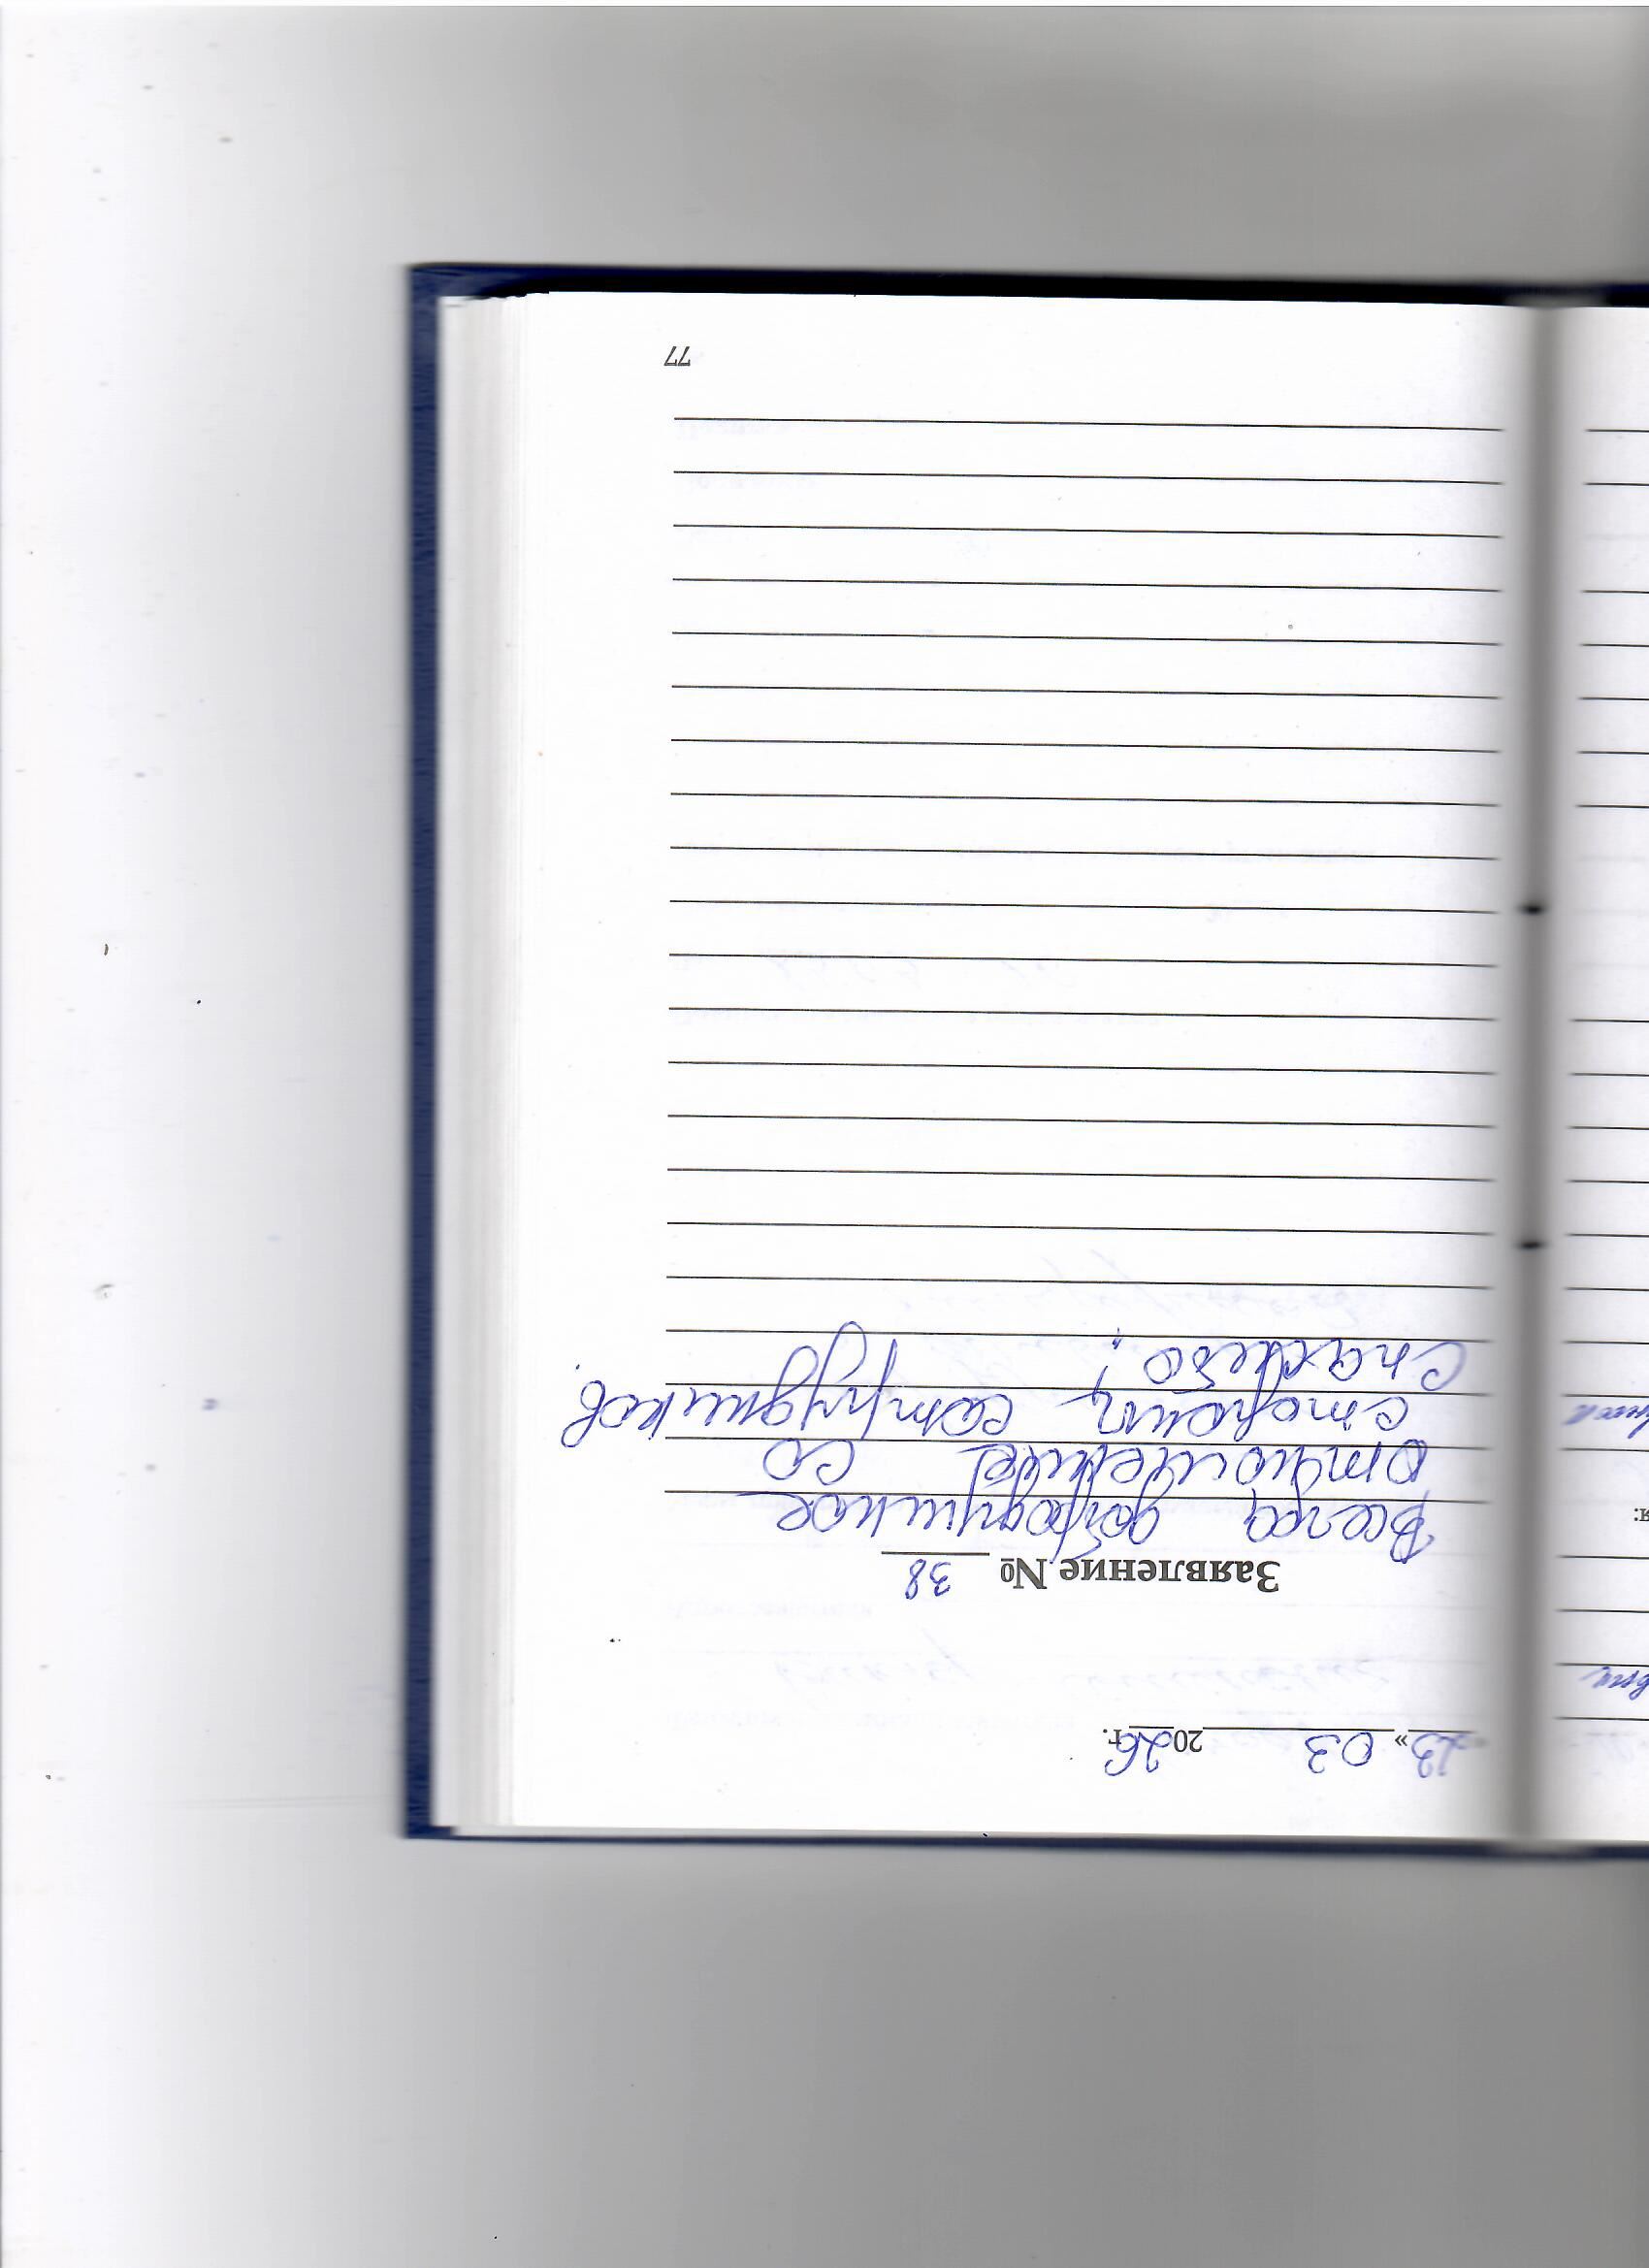 «23» 03 2026 г.
Заявление № 38
Всегда добродушное
отношение со
стороны сотрудников.
Спасибо!
77